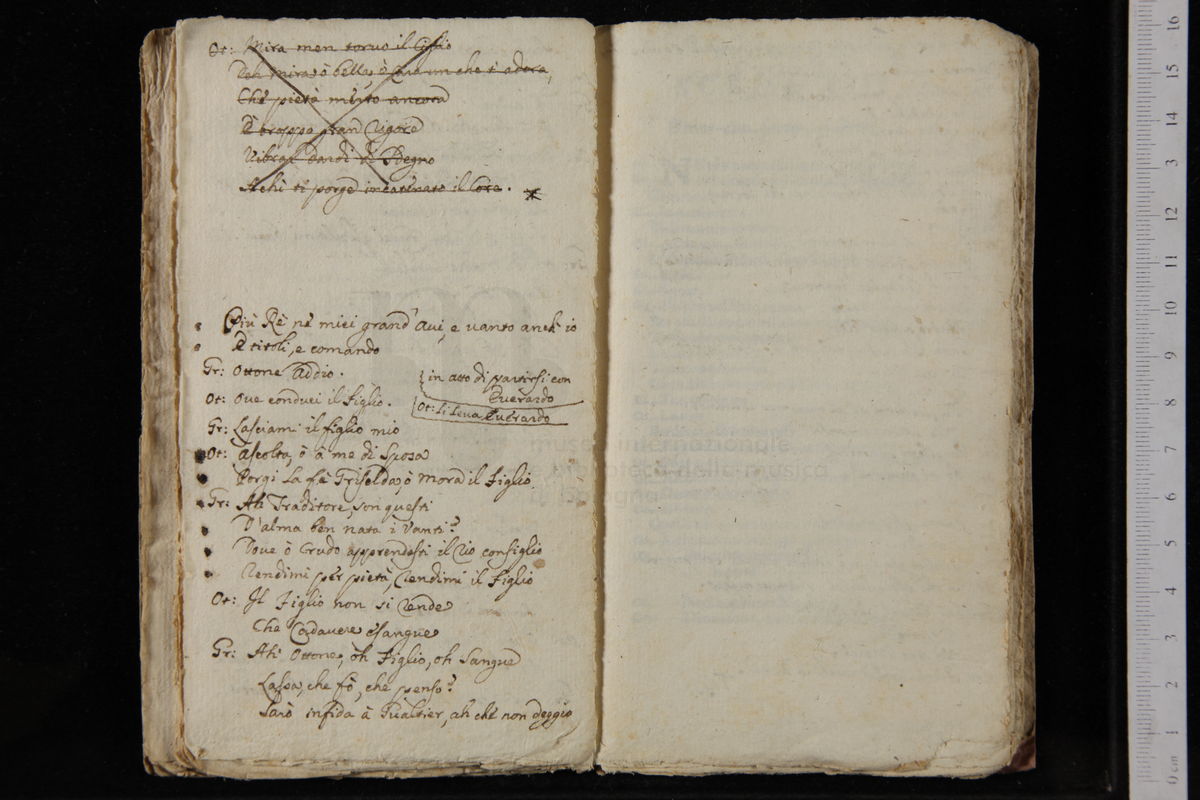 Ot: Mira men toruo il Ciglio
Deh mira ò bella, ò Cara un che t'adora,
Che pietà merto ancora
È troppo gran Rigore
Vibrar Dardi di Sdegno
A chi ti porge incatenato il Core. *
Più Rè nè miei grand' Aui, e uanto anch' io
E titoli, e comando
Gr: Ottone Addio.
in atto di partirsi con
Everardo
Ot: Oue conduci il figlio.
Ot: li leua Euerardo
Gr: Lasciami il figlio mio
Ot: Ascolta, ò a me di Sposa
Porgi la fè Griselda, ò mora il Figlio
Gr: Ahi Traditore, son questi
D'alma ben nata i Vanti?
Doue ò Crudo apprendesti il Rio consiglio
Rendimi per pietà, Rendimi il Figlio
Ot: Il Figlio non si Rende
Che Cadauere esangue
Gr: Ahi Ottone, oh Figlio, oh Sangue
Lassa, che fò, che penso?
Sarò infida à Gualtier, ah chè non deggio
museo internazionale
e biblioteca della musica
di Bologna
16
15
14
13
12
11
10
9
8
7
6
5
4
3
2
1
0 cm